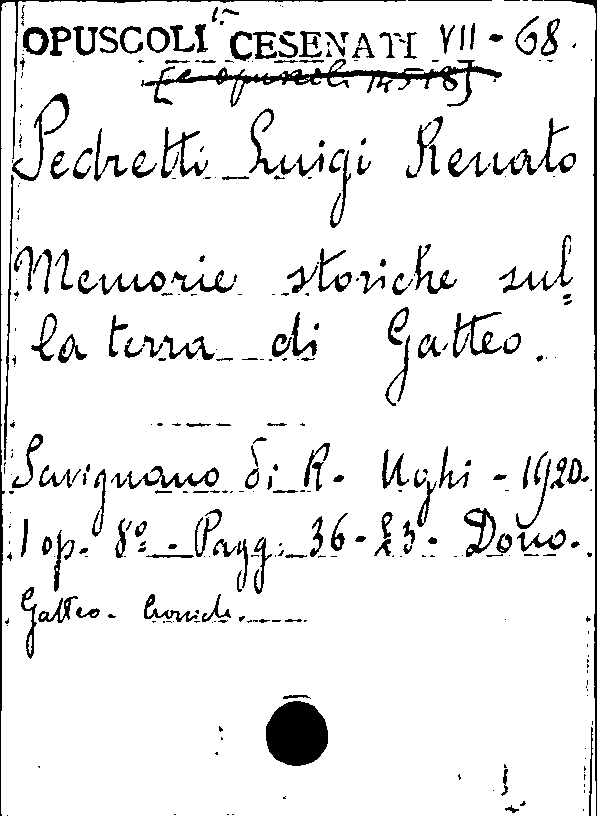 OPUSCOLI CESENATI VII - 68.
[e opuscoli 14518]
Pedretti Luigi Renato
Memorie storiche sul=
la terra di Gatteo.
Savignano di R. Ughi - 1920.
1 op. 8º - Pagg. 36 - £ 3 - Dono.
Gatteo - Cronich.